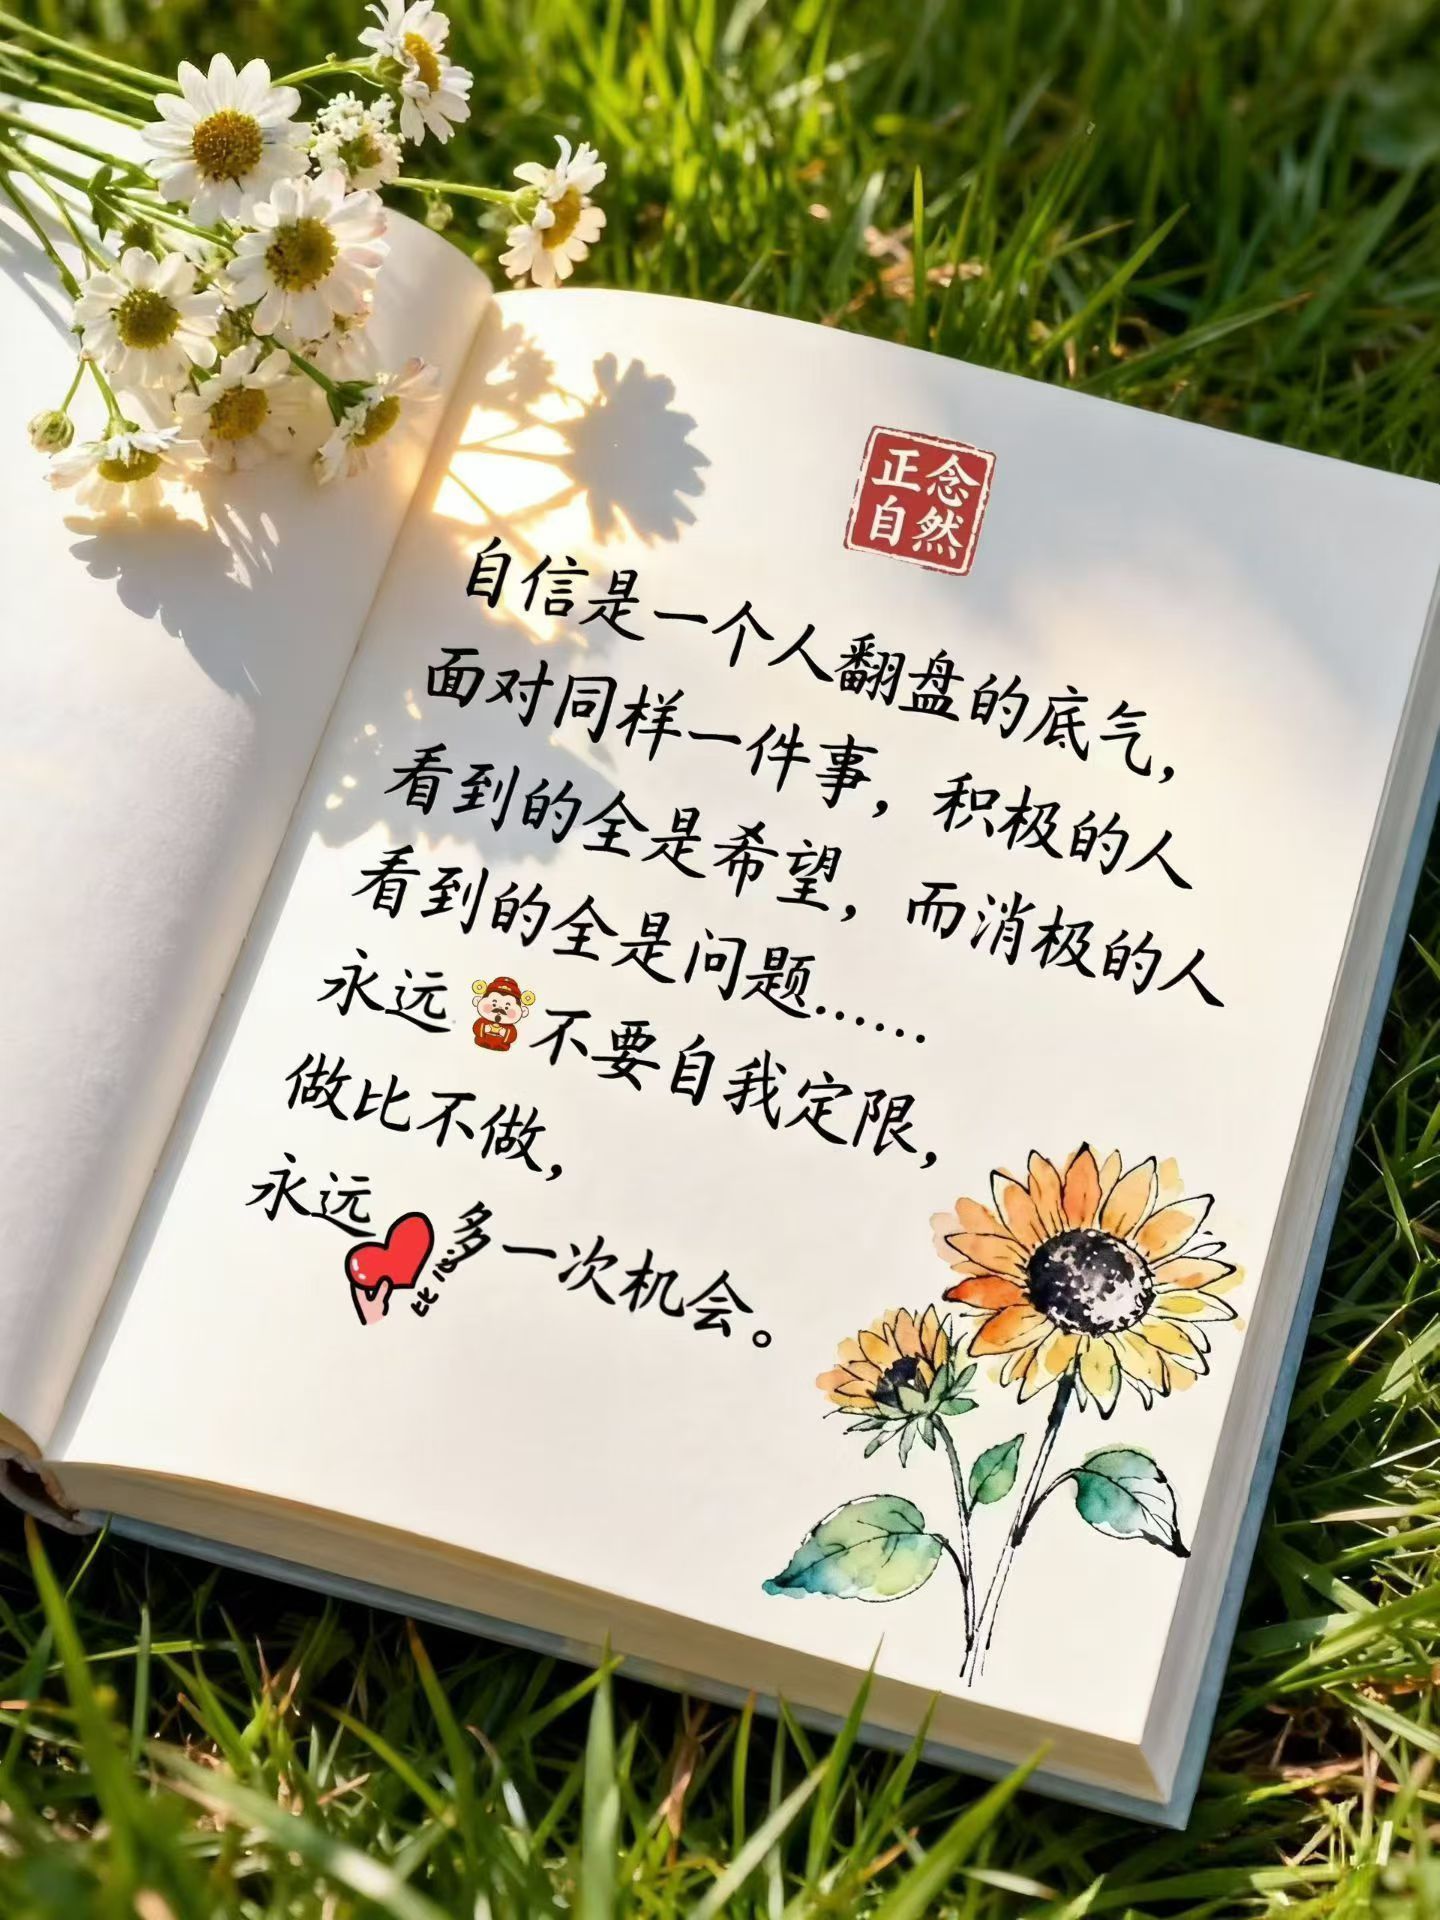 正念
自然
自信是一个人翻盘的底气，
面对同样一件事，积极的人
看到的全是希望，而消极的人
看到的全是问题……
永远不要自我定限，
做比不做，
永远多一次机会。
比心